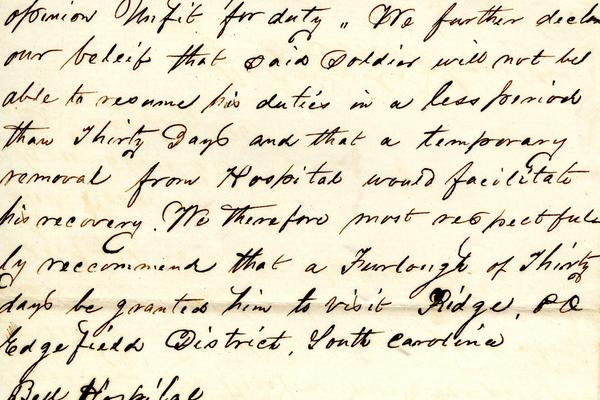 opinion Unfit for duty „ We further declar
our beleif that said Soldier will not be
able to resume his duties in a less period
than Thirty Days and that a temporary
removal from Hospital would facilitate
his recovery. We therefore most respectful
ly reccommend that a Furlough of Thirty
days be granted him to visit Ridge, PO
Edgefield District, South Carolina
Bell Hospital